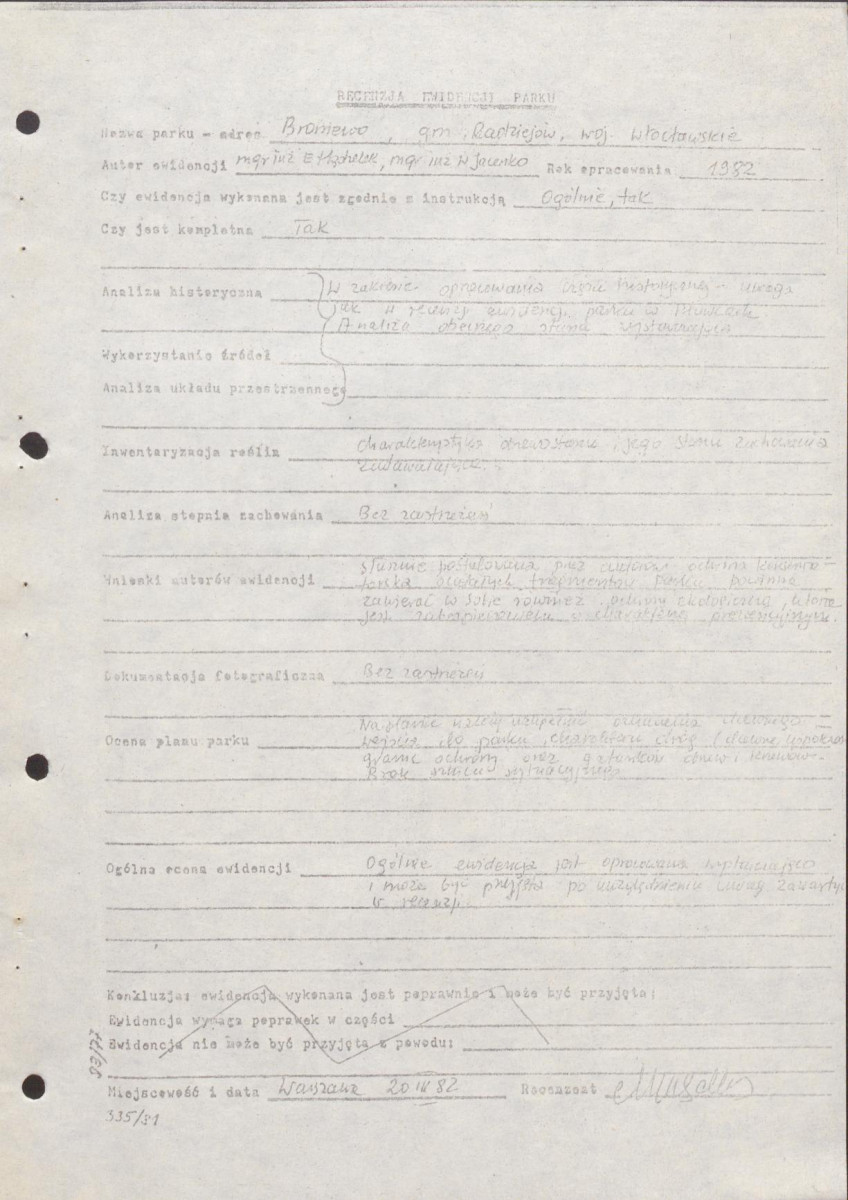 RECENZJA EWIDENCJI PARKU
Nazwa parku - adres Broniewo, gm. Radziejów, woj. Włocławskie
Autor ewidencji mgr inż E mgr inż W Jacenko Rok opracowania 1982
Czy ewidencja wykonana jest zgodnie z instrukcją Ogólnie, tak
Czy jest kompletna Tak
Analiza historyczna W zakresie opracowania części historycznej - uwaga
jak w recenzji ewidencji parku w
Analiza obecnego stanu wystarczająca
Wykorzystanie źródeł
Analiza układu przestrzennego
Inwentaryzacja roślin charakterystyka drzewostanu i jego stanu zachowania
zadawalające.
Analiza stopnia zachowania Bez zastrzeżeń
Słusznie postulowana przez autorów ochrona konserwa-
Wnioski autorów ewidencji torska ocalałych fragmentów parku powinna
zawierać w sobie również ochronę ekologiczną, która
jest zabezpieczeniem o charakterze prewencyjnym.
Dokumentacja fotograficzna Bez zastrzeżeń
Na planie należy uzupełnić oznaczenia dawnego
Ocena planu parku wejścia do parku, charakteru dróg (dawne, współczes
granic ochrony oraz gatunków drzew i krzewów.
Brak szkicu sytuacyjnego
Ogólna ocena ewidencji Ogólnie ewidencja jest opracowana wystarczająco
i może być przyjęta po uwzględnieniu uwag zawartyc
w recenzji.
Konkluzja: ewidencja wykonana jest poprawnie i może być przyjęta;
Ewidencja wymaga poprawek w części
Ewidencja nie może być przyjęta z powodu:
Miejscowość i data Warszawa 20 III 82 Recenzent
335/31